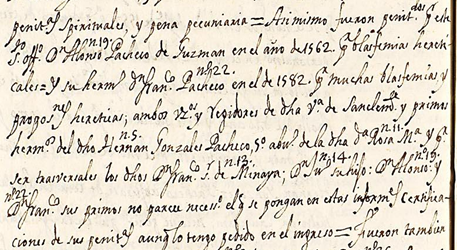 penitᵃˢ spirituales, y pena pecuniaria = Asimismo fueron penitᵈᵒˢ pʳ este
Sᵗᵒ offº. Dⁿ Alonso nº19. Pacheco de Guzman en el año de 1562. pʳ blasfemia hereti-
cales = y su hermº Dⁿ Franᶜᵒ nº22. Pacheco en el de 1582. pʳ muchas blasfemias y
propoˢⁿᵉˢ heretícas; ambos vzºˢ y Regidores de dha Vᵃ de Sanclemᵗᵉ y primos
hermºˢ del dho Hernan nº5. Gonzales Pacheco, 5º abuº de la dha Dᵃ Rosa nº11. Mᵃ y pʳ
ser trasversales los dhos Dⁿ Franᶜᵒ Sʳ nº13. de Minaya; Dⁿ Jⁿ nº14. su hijo: Dⁿ Alonso nº19. y
Dⁿ Franᶜᵒ nº22. sus primos no parece necesº el qᵉ se pongan en estas informˢ Certifica-
ciones de sus penitᵃˢ aunqᵉ lo tengo pedido en el ingreso = Fueron tambien